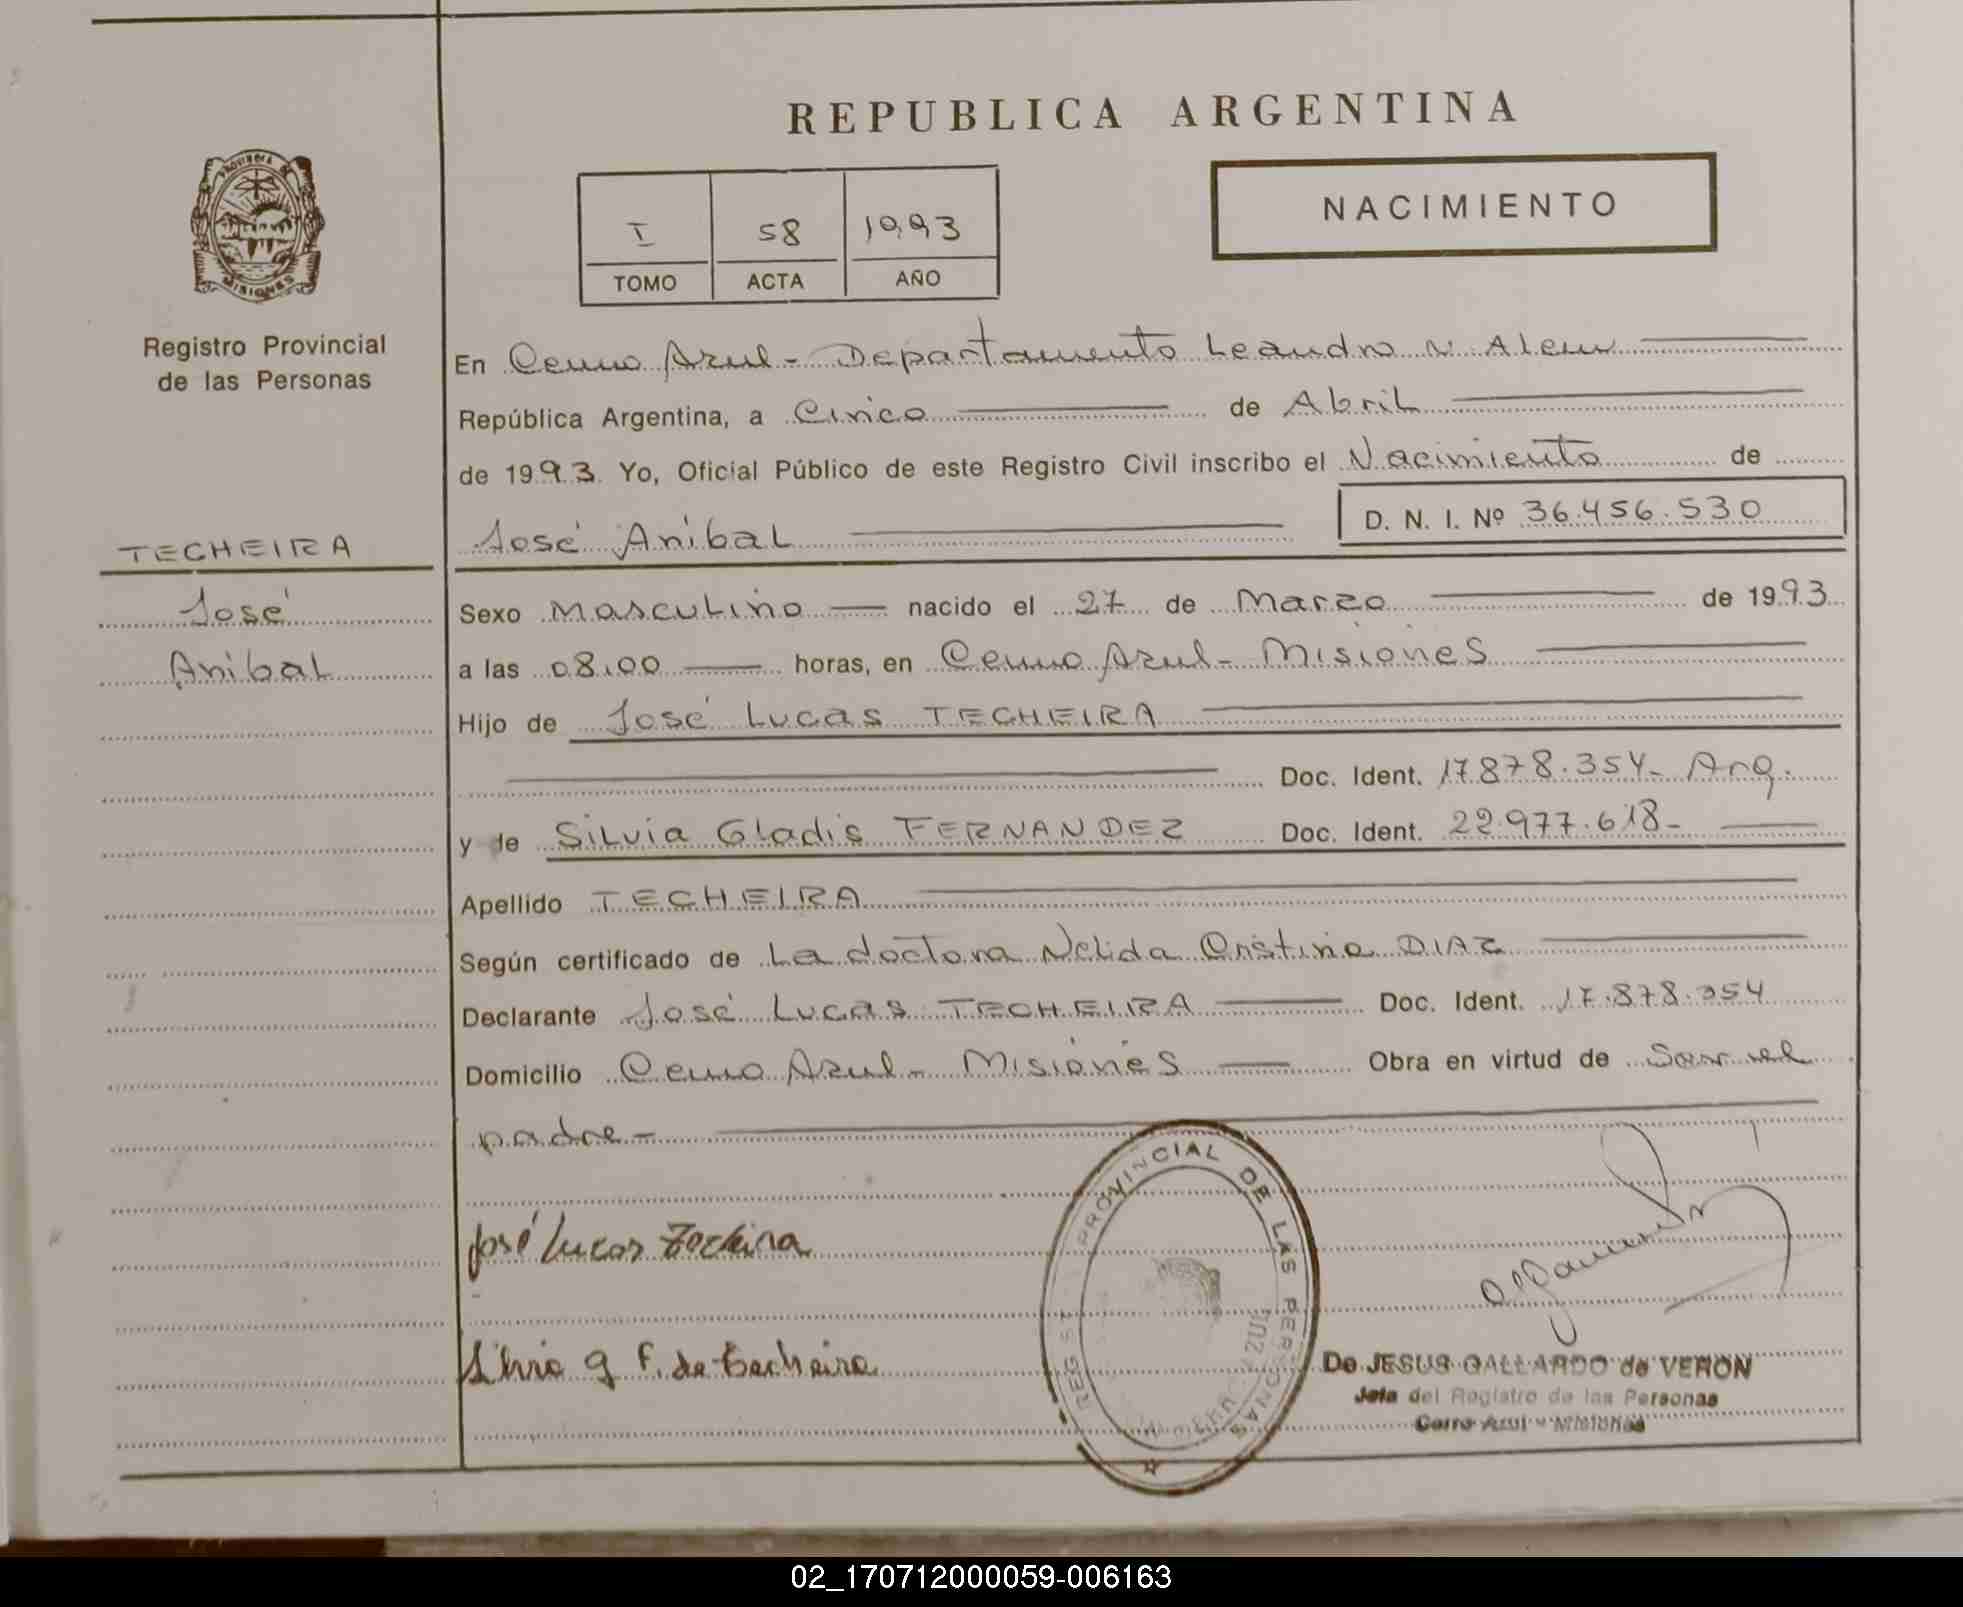 REPUBLICA ARGENTINA
PROVINCIA DE
MISIONES
Registro Provincial
de las Personas
I 58 1993
TOMO ACTA AÑO
NACIMIENTO
En Cerro Azul - Departamento Leandro N. Alem
República Argentina, a Cinco de Abril
de 1993 Yo, Oficial Público de este Registro Civil inscribo el Nacimiento de
José Anibal D. N. I. Nº 36.456.530
TECHEIRA
José
Anibal
Sexo Masculino nacido el 27 de Marzo de 1993
a las 08.00 horas, en Cerro Azul - Misiones
Hijo de José Lucas TECHEIRA
Doc. Ident. 17.878.354- Arg.
y de Silvia Gladis FERNANDEZ Doc. Ident. 22.977.618-
Apellido TECHEIRA
Según certificado de La doctora Nelida Cristina DIAZ
Declarante José Lucas TECHEIRA Doc. Ident. 17.878.354
Domicilio Cerro Azul - Misiones Obra en virtud de Ser el
padre -
José Lucas Techeira
Silvia G F. de Techeira
REGISTRO PROVINCIAL DE LAS PERSONAS
De JESUS GALLARDO de VERON
Jefa del Registro de las Personas
Cerro Azul - Misiones
02_170712000059-006163